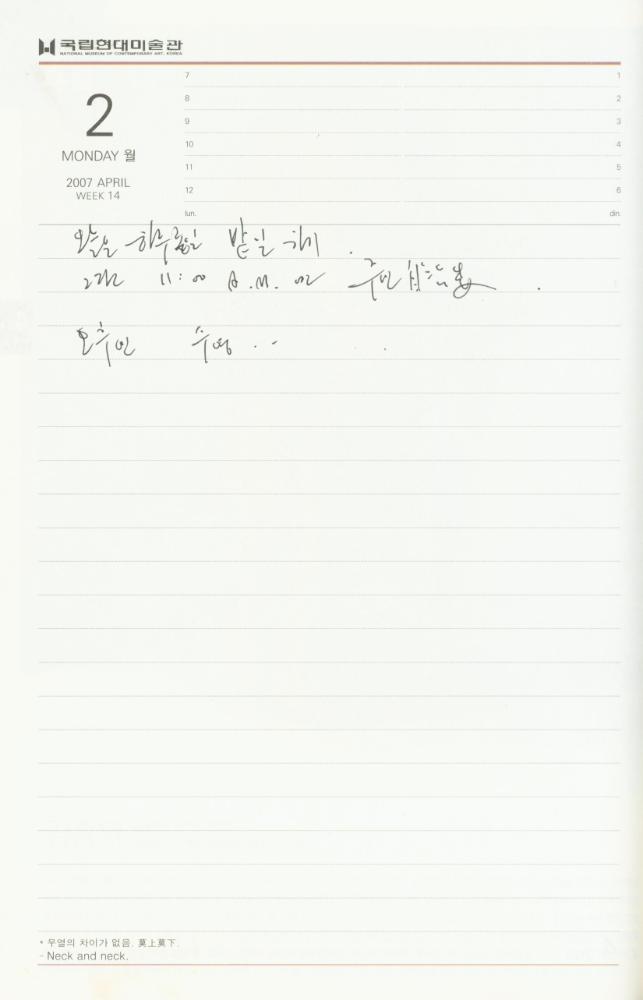 국립현대미술관
NATIONAL MUSEUM OF CONTEMPORARY ART, KOREA
7 1
8 2
2
9 3
10 4
MONDAY 월
11 5
2007 APRIL
12 6
WEEK 14
lun. din.
오늘은 하루종일 밭일 하기.
11:00 A.M. 에 주민
오후엔 수영..
* 우열의 차이가 없음. 莫上莫下.
- Neck and neck.